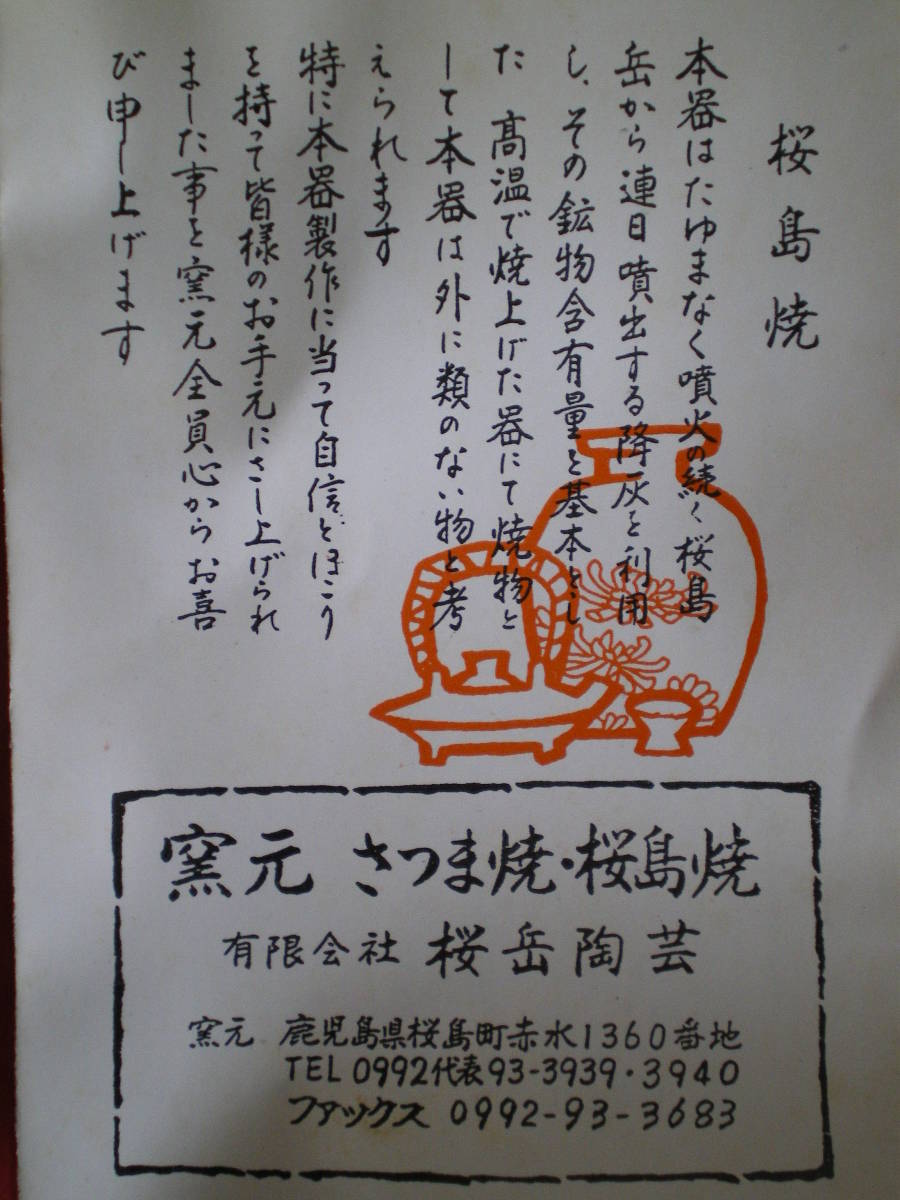 桜島焼
本器はたゆまなく噴火の続く桜島
岳から連日噴出する降灰を利用
し、その鉱物含有量を基本とし
た 高温で焼上げた器にて焼物と
して本器は外に類のない物と考
えられます
特に本器製作に当って自信とほこり
を持って皆様のお手元にさし上げられ
ました事を窯元全員心からお喜
び申し上げます
窯元 さつま焼・桜島焼
有限会社 桜岳陶芸
窯元 鹿児島県桜島町赤水1360番地
TEL 0992代表93-3939・3940
ファックス 0992-93-3683